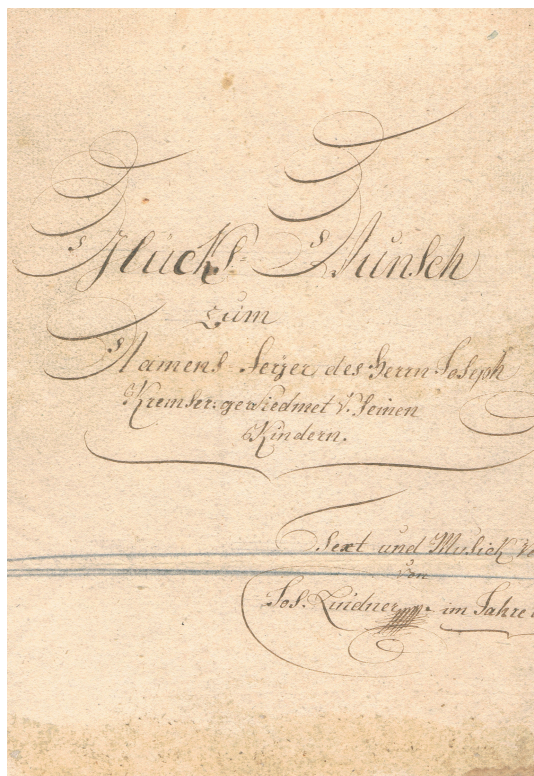 Glücks-Wunsch
zum
Namens-Feyer, des Herrn Joseph
Kremser: gewiedmet v. Seinen
Kindern.
Text und Musick
von
Jos. Lindner im Jahre